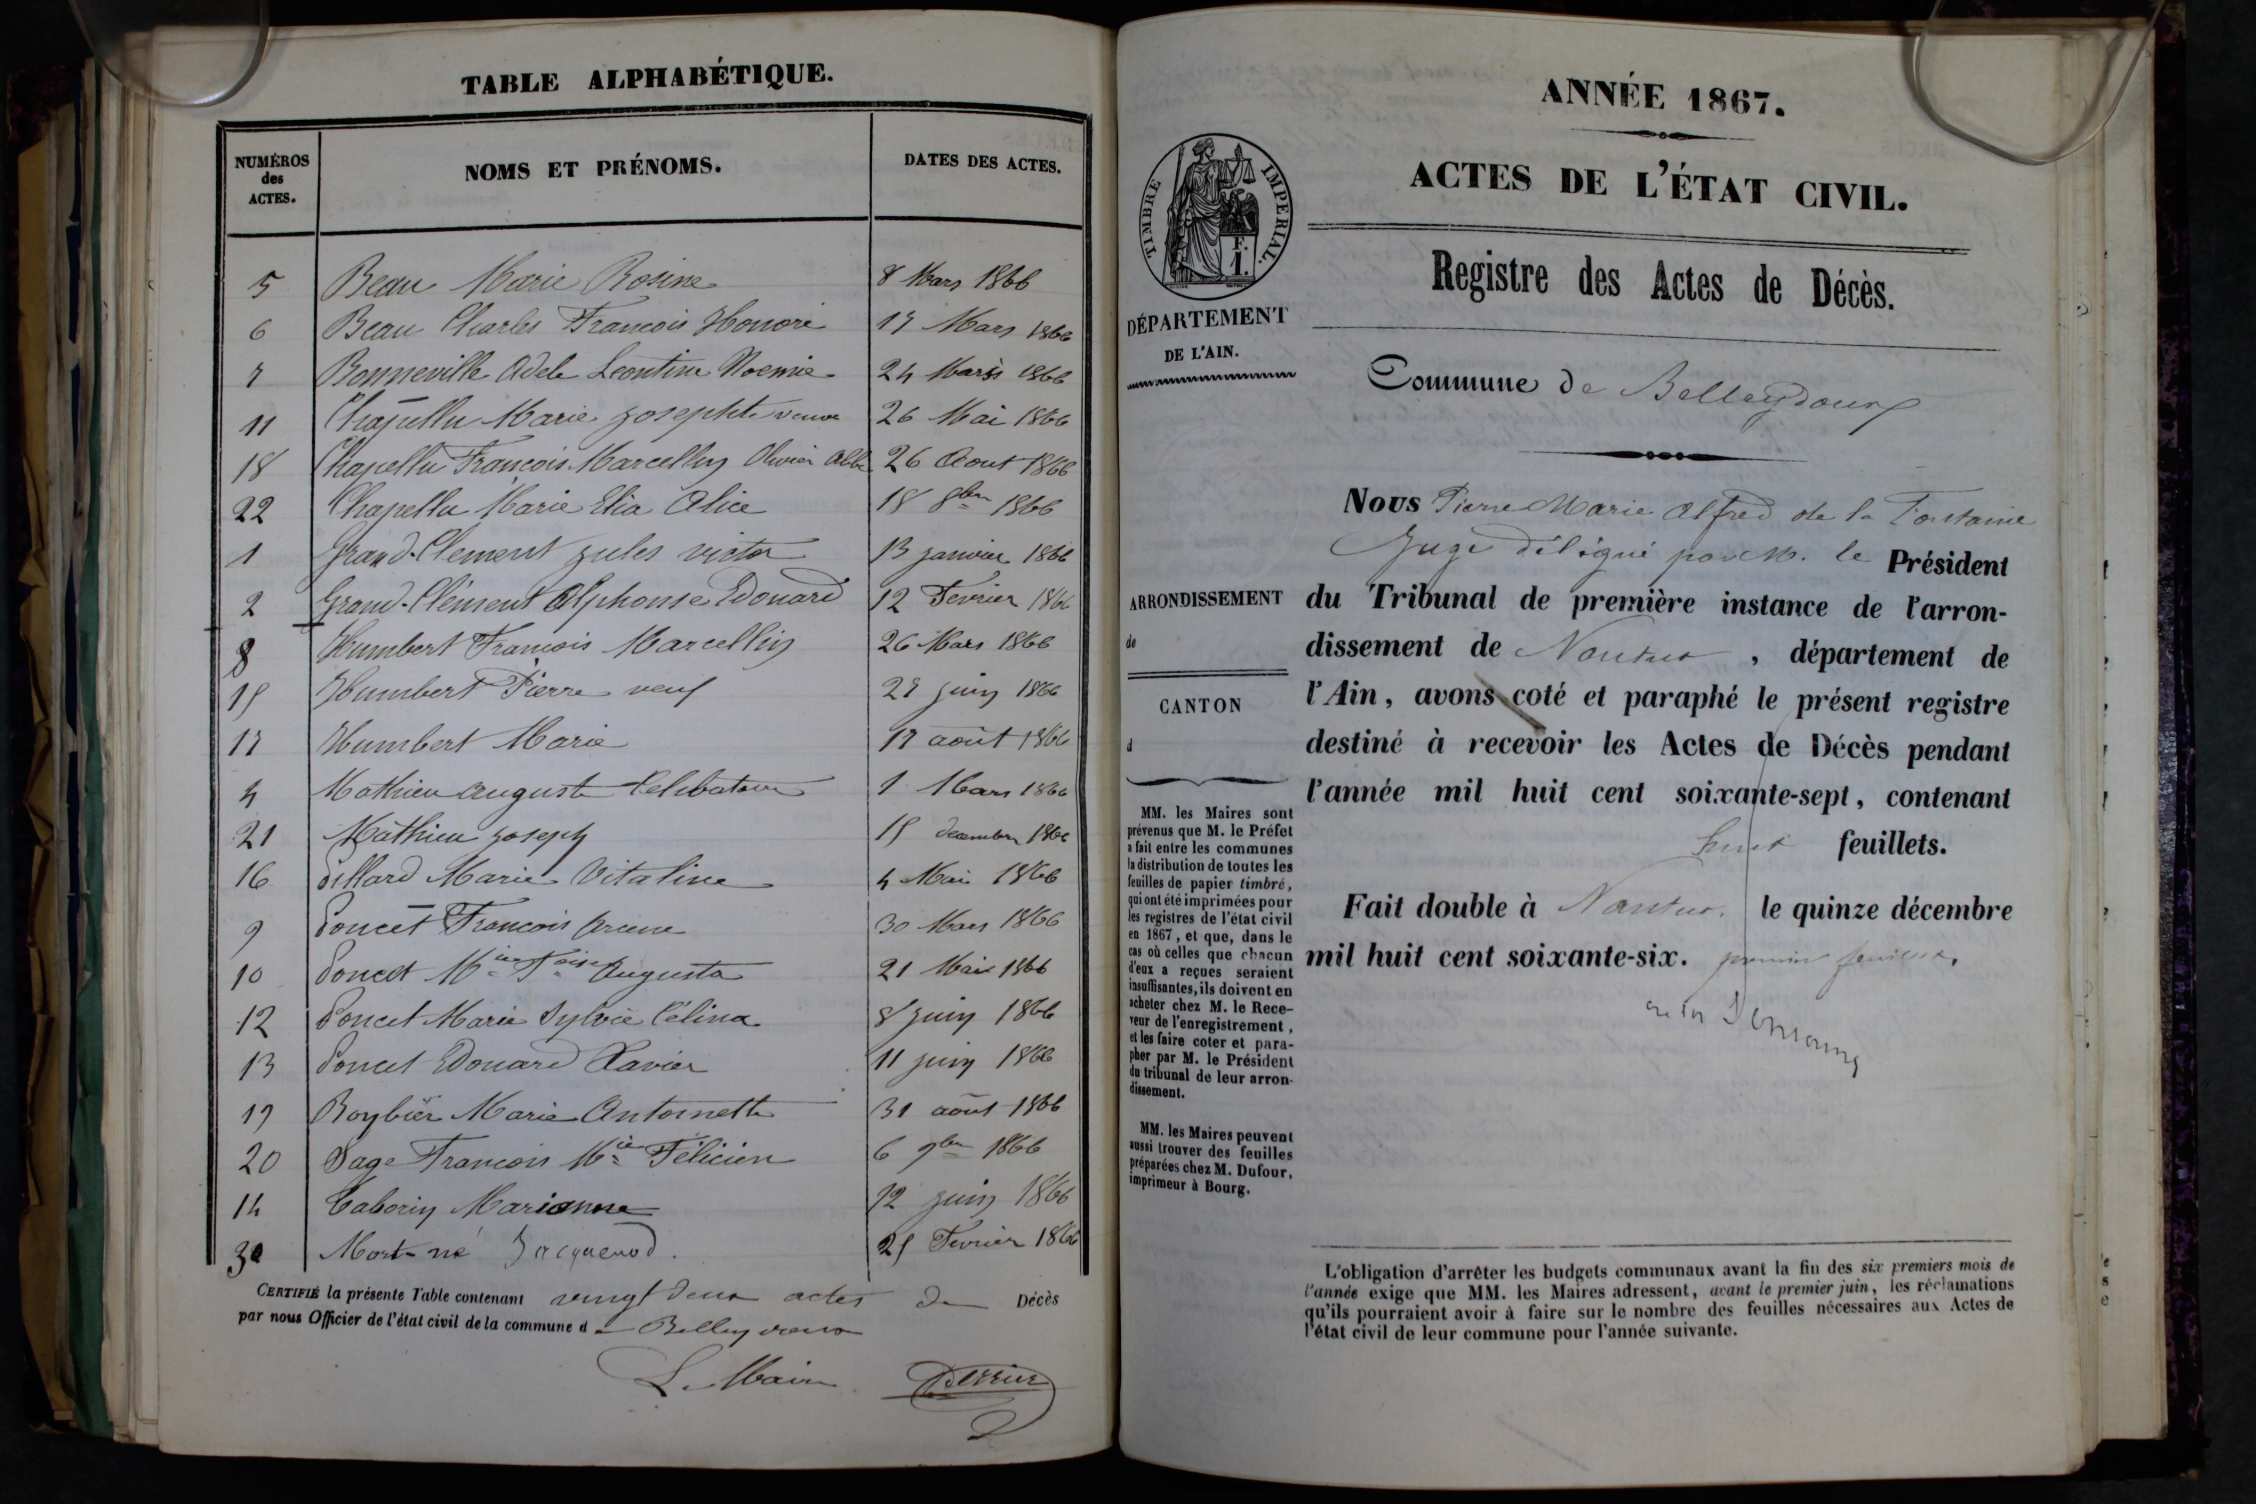 TABLE ALPHABÉTIQUE.
NUMÉROS des ACTES. NOMS ET PRÉNOMS. DATES DES ACTES.
5 Beau Marie Rosine 8 Mars 1866
6 Beau Charles Francois Honoré 17 Mars 1866
7 Bonneville Adele Leontine Noemie 24 Mars 1866
11 Chapellu Marie Josephte veuve 26 Mai 1866
18 Chapellu Francois Marcellin Olivier 26 Aout 1866
22 Chapellu Marie Elia Alice 18 1866
1 Grand-Clement Jules victor 13 janvier 1866
2 Grand-Clément Alphonse Edouard 12 Fevrier 1866
8 Humbert Francois Marcellin 26 Mars 1866
15 Humbert Pierre veuf 27 juin 1866
17 Humbert Marie 17 août 1866
4 Mathieu auguste Celibataire 1 Mars 1866
21 Mathieu Joseph 15 decembre 1866
16 Pillard Marie Vitaline 4 Mai 1866
9 Poncet Francois Arcene 30 Mars 1866
10 Poncet Augusta 21 Mai 1866
12 Poncet Marie Sylvie Célina 8 juin 1866
13 Poncet Edouard Xavier 11 juin 1866
19 Roybier Marie Antoinette 31 août 1866
20 Sage Francois Mie Félicien 6 9bre 1866
14 Taborin Marianne 12 juin 1866
3 Mort-né Jacquenod. 25 Fevrier 1866
CERTIFIÉ la présente Table contenant vingt deux actes de Décès
par nous Officier de l'état civil de la commune de Belleydoux
Le Maire
ANNÉE 1867.
ACTES DE L'ÉTAT CIVIL.
Registre des Actes de Décès.
TIMBRE IMPERIAL.
F.
1.
DÉPARTEMENT
DE L'AIN.
Commune de Belleydoux
Nous Pierre Marie Alfred de la Fontaine
Juge délégué par M. le Président
du Tribunal de première instance de l'arron-
dissement de Nantua, département de
l'Ain, avons coté et paraphé le présent registre
destiné à recevoir les Actes de Décès pendant
l'année mil huit cent soixante-sept, contenant
huit feuillets.
Fait double à Nantua. le quinze décembre
mil huit cent soixante-six. premier feuillet.
ARRONDISSEMENT
de
CANTON
d
MM. les Maires sont
prévenus que M. le Préfet
a fait entre les communes
la distribution de toutes les
feuilles de papier timbré,
qui ont été imprimées pour
les registres de l'état civil
en 1867, et que, dans le
cas où celles que chacun
d'eux a reçues seraient
insuffisantes, ils doivent en
acheter chez M. le Rece-
veur de l'enregistrement,
et les faire coter et para-
pher par M. le Président
du tribunal de leur arron-
dissement.
MM. les Maires peuvent
aussi trouver des feuilles
préparées chez M. Dufour,
imprimeur à Bourg.
L'obligation d'arrêter les budgets communaux avant la fin des six premiers mois de
l'année exige que MM. les Maires adressent, avant le premier juin, les réclamations
qu'ils pourraient avoir à faire sur le nombre des feuilles nécessaires aux Actes de
l'état civil de leur commune pour l'année suivante.